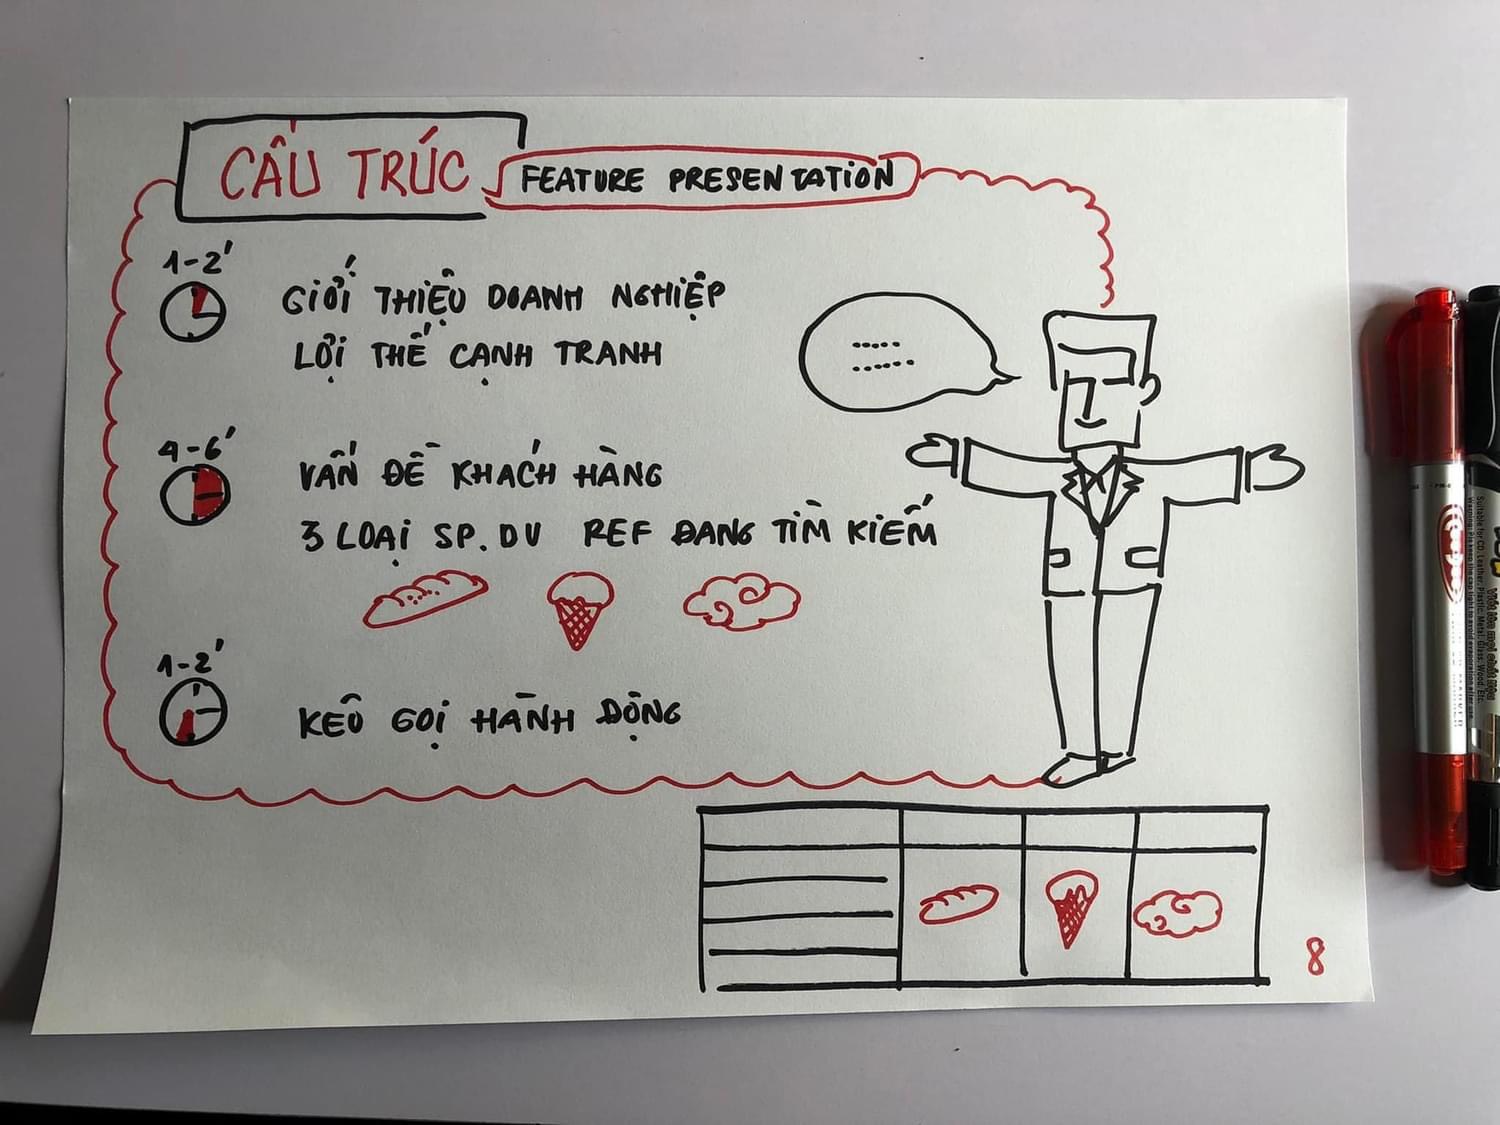 CẤU TRÚC
FEATURE PRESENTATION
1-2'
GIỚI THIỆU DOANH NGHIỆP
LỢI THẾ CẠNH TRANH
4-6'
VẤN ĐỀ KHÁCH HÀNG
3 LOẠI SP. DV REF ĐANG TÌM KIẾM
1-2'
KÊU GỌI HÀNH ĐỘNG
8
Viết lên mọi chất liệu
Suitable for CD. Leather. Plastic. Metal. Glass. Wood. Etc.